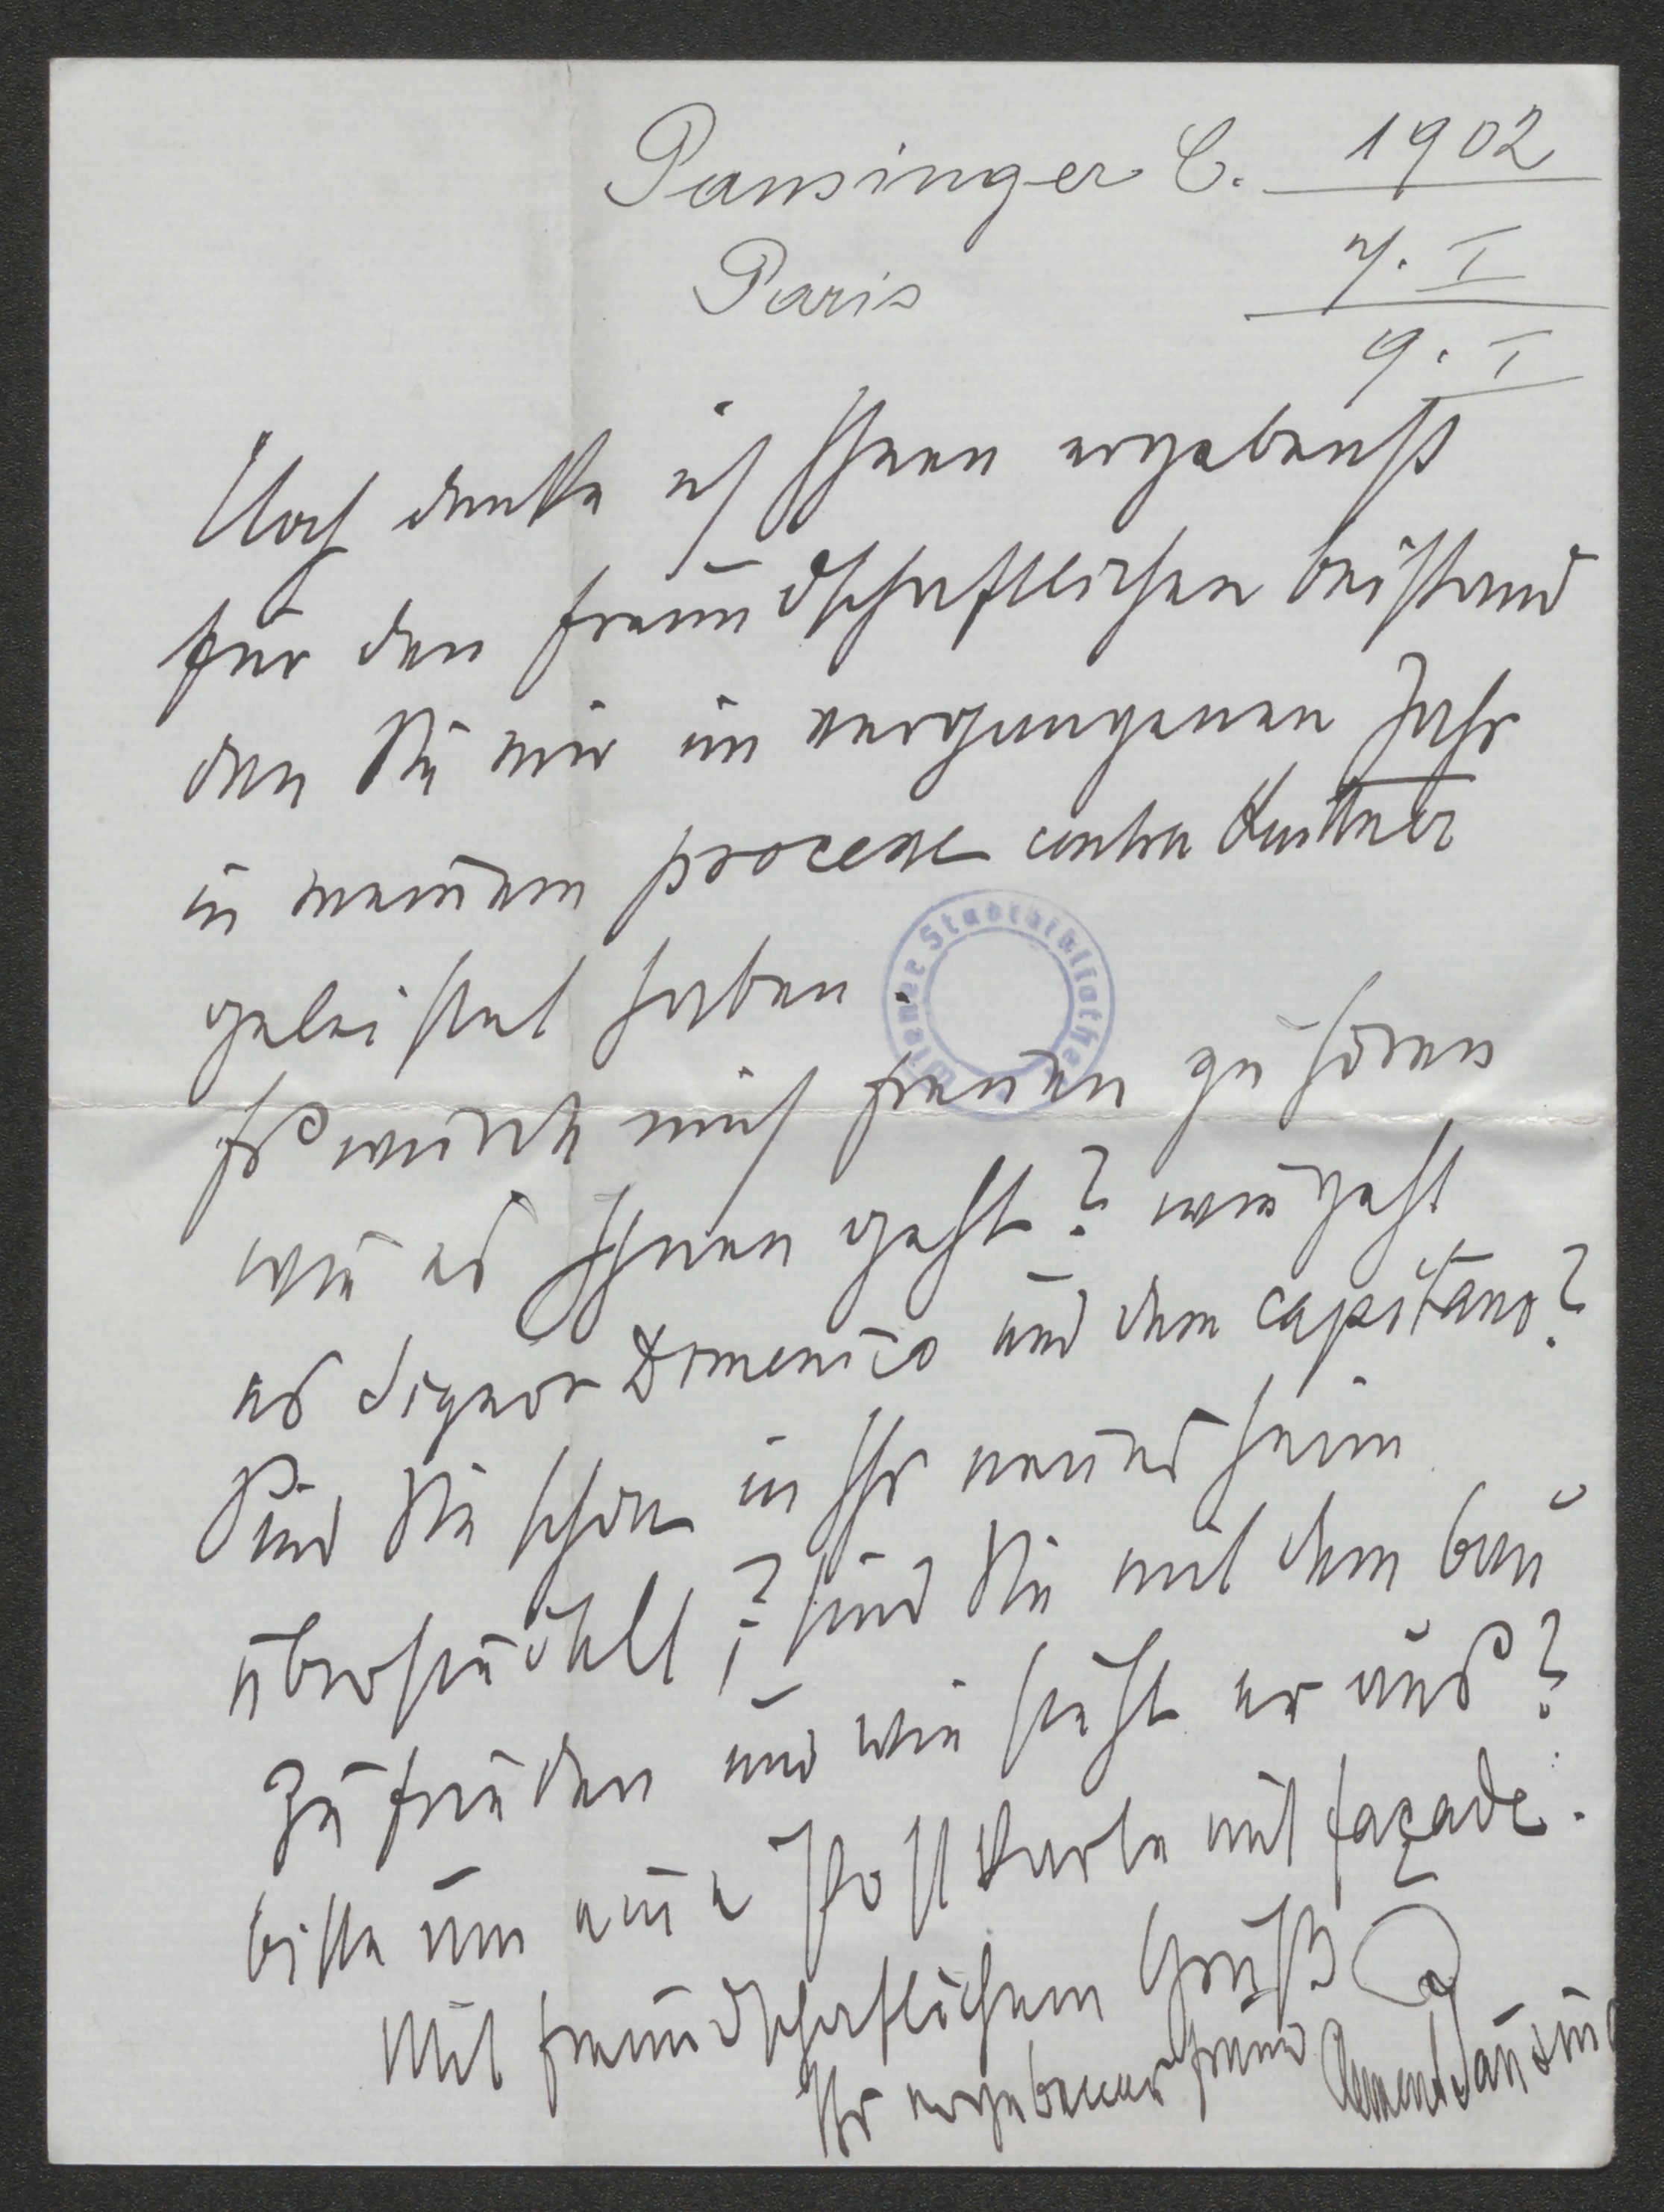 Pausinger C. 1902
Paris 7. I
9. I
Noch danke ich Ihnen ergebenst
für den freundschaftlichen beistand
den Sie mir im vergangenen Jahr
in meinem processe contra
geleistet haben.
Wiener Stadtbibliothek
Es würde mich freuen zu hören
wie es Ihnen geht? wie geht
es Signor Domenico und dem capitano?
Sind Sie schon in Ihr neues heim
übersiedelt? sind Sie mit dem bau
zufrieden und wie sieht er aus?
bitte um eine Postkarte mit façade.
Mit freundschaftlichem Gruß
Ihr ergebener freund Clemens Pausin